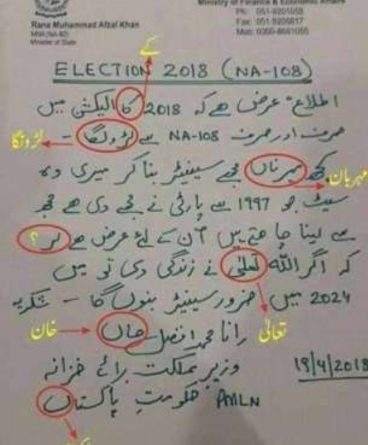 Rana Muhammad Afzal Khan
MNA (NA-82)
Minister of State
Ministry of Finance & Economic Affairs
Ph: 051-9201058
Fax: 051-9206817
Mob: 0300-8661055
کے
ELECTION 2018 (NA-108)
اطلاعً عرض ہے کہ 2018 کا الیکشن میں
صرف اور صرف NA-108 سے لڑو لگا -
لڑونگا
کچھ مہرناں مجھے سینیٹر بنا کر میری وہ
مہربان
سیٹ جو 1997 سے پارٹی نے مجھے دی ھے مجھ
سے لینا چاھتے ہیں ان کے لئے عرض ھے لر ؟
کہ اگر اللہ تعلٰی نے زندگی دی تو میں
2024 میں ضرور سینیٹر بنوں گا - شکریہ
تعالٰی
رانا محمد افضل حاں
خان
وزیر مملکت برائے خزانہ
19/4/2018
حکومتِ پاکستاں PMLN